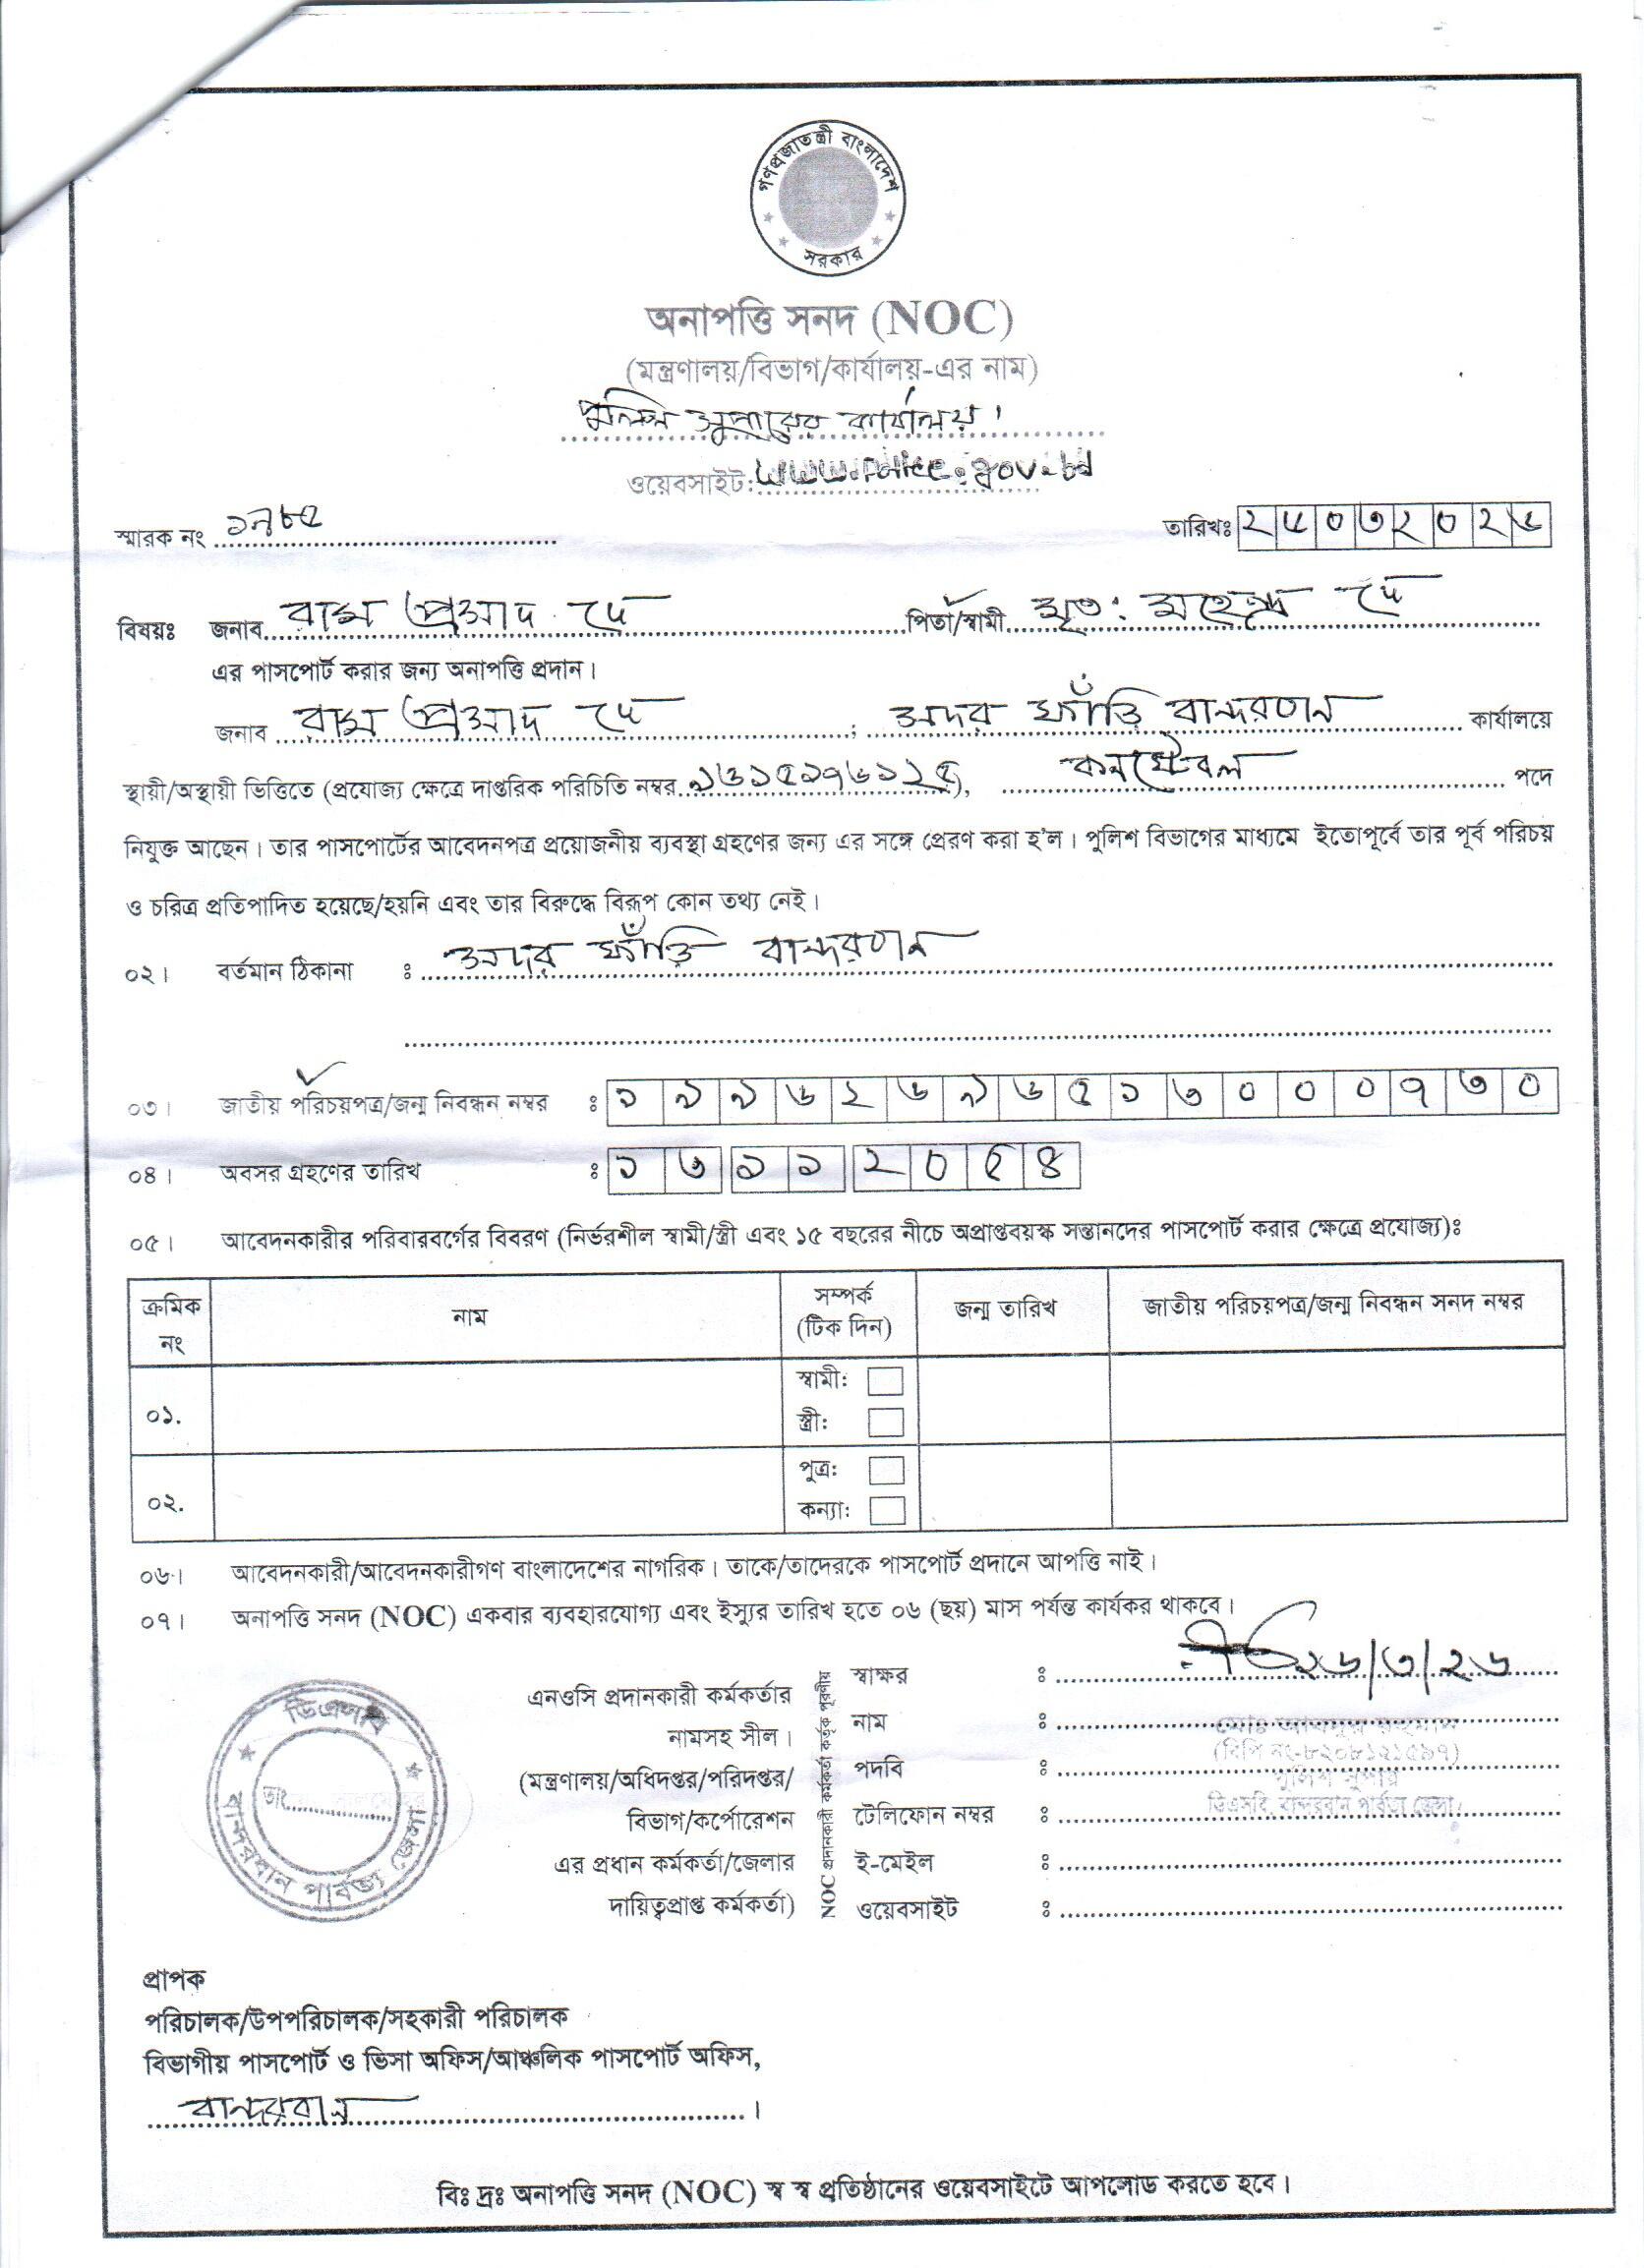 গণপ্রজাতন্ত্রী বাংলাদেশ
সরকার
অনাপত্তি সনদ (NOC)
(মন্ত্রণালয়/বিভাগ/কার্যালয়-এর নাম)
পুলিশ সুপারের কার্যালয়।
ওয়েবসাইট: www.police.gov.bd
স্মারক নং ১৯৮৫
তারিখঃ
বিষয়ঃ জনাব রাম প্রসাদ দে পিতা/স্বামী মৃত: মহেন্দ্র দে
এর পাসপোর্ট করার জন্য অনাপত্তি প্রদান।
জনাব রাম প্রসাদ দে ; সদর ফাঁড়ি বান্দরবান কার্যালয়ে
স্থায়ী/অস্থায়ী ভিত্তিতে (প্রযোজ্য ক্ষেত্রে দাপ্তরিক পরিচিতি নম্বর ৯৬১৫১৭৬১২৫), কনস্টেবল পদে
নিযুক্ত আছেন। তার পাসপোর্টের আবেদনপত্র প্রয়োজনীয় ব্যবস্থা গ্রহণের জন্য এর সঙ্গে প্রেরণ করা হ'ল। পুলিশ বিভাগের মাধ্যমে ইতোপূর্বে তার পূর্ব পরিচয়
ও চরিত্র প্রতিপাদিত হয়েছে/হয়নি এবং তার বিরুদ্ধে বিরূপ কোন তথ্য নেই।
০২। বর্তমান ঠিকানা ঃ সদর ফাঁড়ি বান্দরবান
০৩। জাতীয় পরিচয়পত্র/জন্ম নিবন্ধন নম্বর ঃ ১৯৯৬২৬৯৬৫১৩০০০৭৩০
০৪। অবসর গ্রহণের তারিখ ঃ ১৩ ১১ ২০৫৪
০৫। আবেদনকারীর পরিবারবর্গের বিবরণ (নির্ভরশীল স্বামী/স্ত্রী এবং ১৫ বছরের নীচে অপ্রাপ্তবয়স্ক সন্তানদের পাসপোর্ট করার ক্ষেত্রে প্রযোজ্য)ঃ
ক্রমিক নং নাম সম্পর্ক (টিক দিন) জন্ম তারিখ জাতীয় পরিচয়পত্র/জন্ম নিবন্ধন সনদ নম্বর
০১. স্বামী:
স্ত্রী:
০২. পুত্র:
কন্যা:
০৬। আবেদনকারী/আবেদনকারীগণ বাংলাদেশের নাগরিক। তাকে/তাদেরকে পাসপোর্ট প্রদানে আপত্তি নাই।
০৭। অনাপত্তি সনদ (NOC) একবার ব্যবহারযোগ্য এবং ইস্যুর তারিখ হতে ০৬ (ছয়) মাস পর্যন্ত কার্যকর থাকবে।
এনওসি প্রদানকারী কর্মকর্তার
নামসহ সীল।
(মন্ত্রণালয়/অধিদপ্তর/পরিদপ্তর/
বিভাগ/কর্পোরেশন
এর প্রধান কর্মকর্তা/জেলার
দায়িত্বপ্রাপ্ত কর্মকর্তা)
NOC প্রদানকারী কর্মকর্তা কর্তৃক পূরণীয়
স্বাক্ষর ঃ ২৬/৩/২৬
নাম ঃ মোঃ আবদুর রহমান
(বিপি নং-৮২০৮১২১৫৯৭)
পদবি ঃ পুলিশ সুপার
ডিএসবি, বান্দরবান পার্বত্য জেলা।
টেলিফোন নম্বর ঃ
ই-মেইল ঃ
ওয়েবসাইট ঃ
ডিএসবি
তাং
বান্দরবান পার্বত্য জেলা
প্রাপক
পরিচালক/উপপরিচালক/সহকারী পরিচালক
বিভাগীয় পাসপোর্ট ও ভিসা অফিস/আঞ্চলিক পাসপোর্ট অফিস,
বান্দরবান।
বিঃ দ্রঃ অনাপত্তি সনদ (NOC) স্ব স্ব প্রতিষ্ঠানের ওয়েবসাইটে আপলোড করতে হবে।